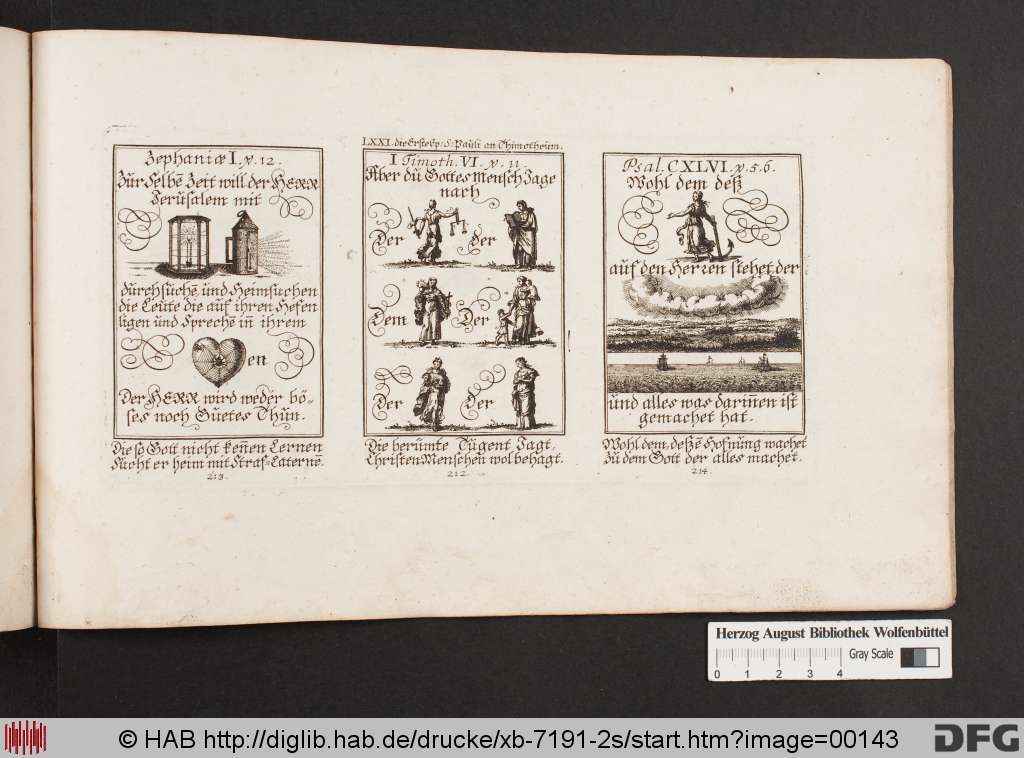 Zephaniæ I. v. 12.
Zur Selbē Zeit will der HERR
Jerusalem mit
durchsuchē und Heimsuchen
die Leute die auf ihren Hefen
ligen und Sprechē iñ ihrem
en
Der HERR wird weder bö-
ses noch Guetes Thun.
Die so Gott nicht keñen Lernen
Sucht er heim mit Straf-Laternē.
213.
LXXI. die Erste Ep: S: Pauli an Thimotheum.
I Timoth. VI. v. 11.
Aber du Gottes Mensch Jage
nach
Der der
Dem Der
Der Der
Die berümte Tugent Jagt,
Christen Menschen wol behagt.
212.
Psal. CXLVI. v. 5. 6.
Wohl dem deß
auf den Herren stehet der
und alles was dariñen ist
gemachet hat.
Wohl dem, deßē Hofnung wachet
Zu dem Gott der alles machet.
214.
Herzog August Bibliothek Wolfenbüttel
Gray Scale
0 1 2 3 4
© HAB http://diglib.hab.de/drucke/xb-7191-2s/start.htm?image=00143
DFG